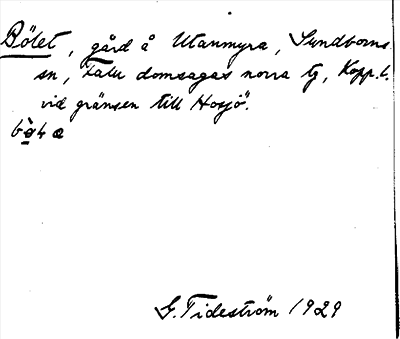 Bölet, gård å Utanmyra, Sundborns
sn, Falu domsagas norra tg, Kopp.l.
vid gränsen till Hosjö.
G. Tideström 1929